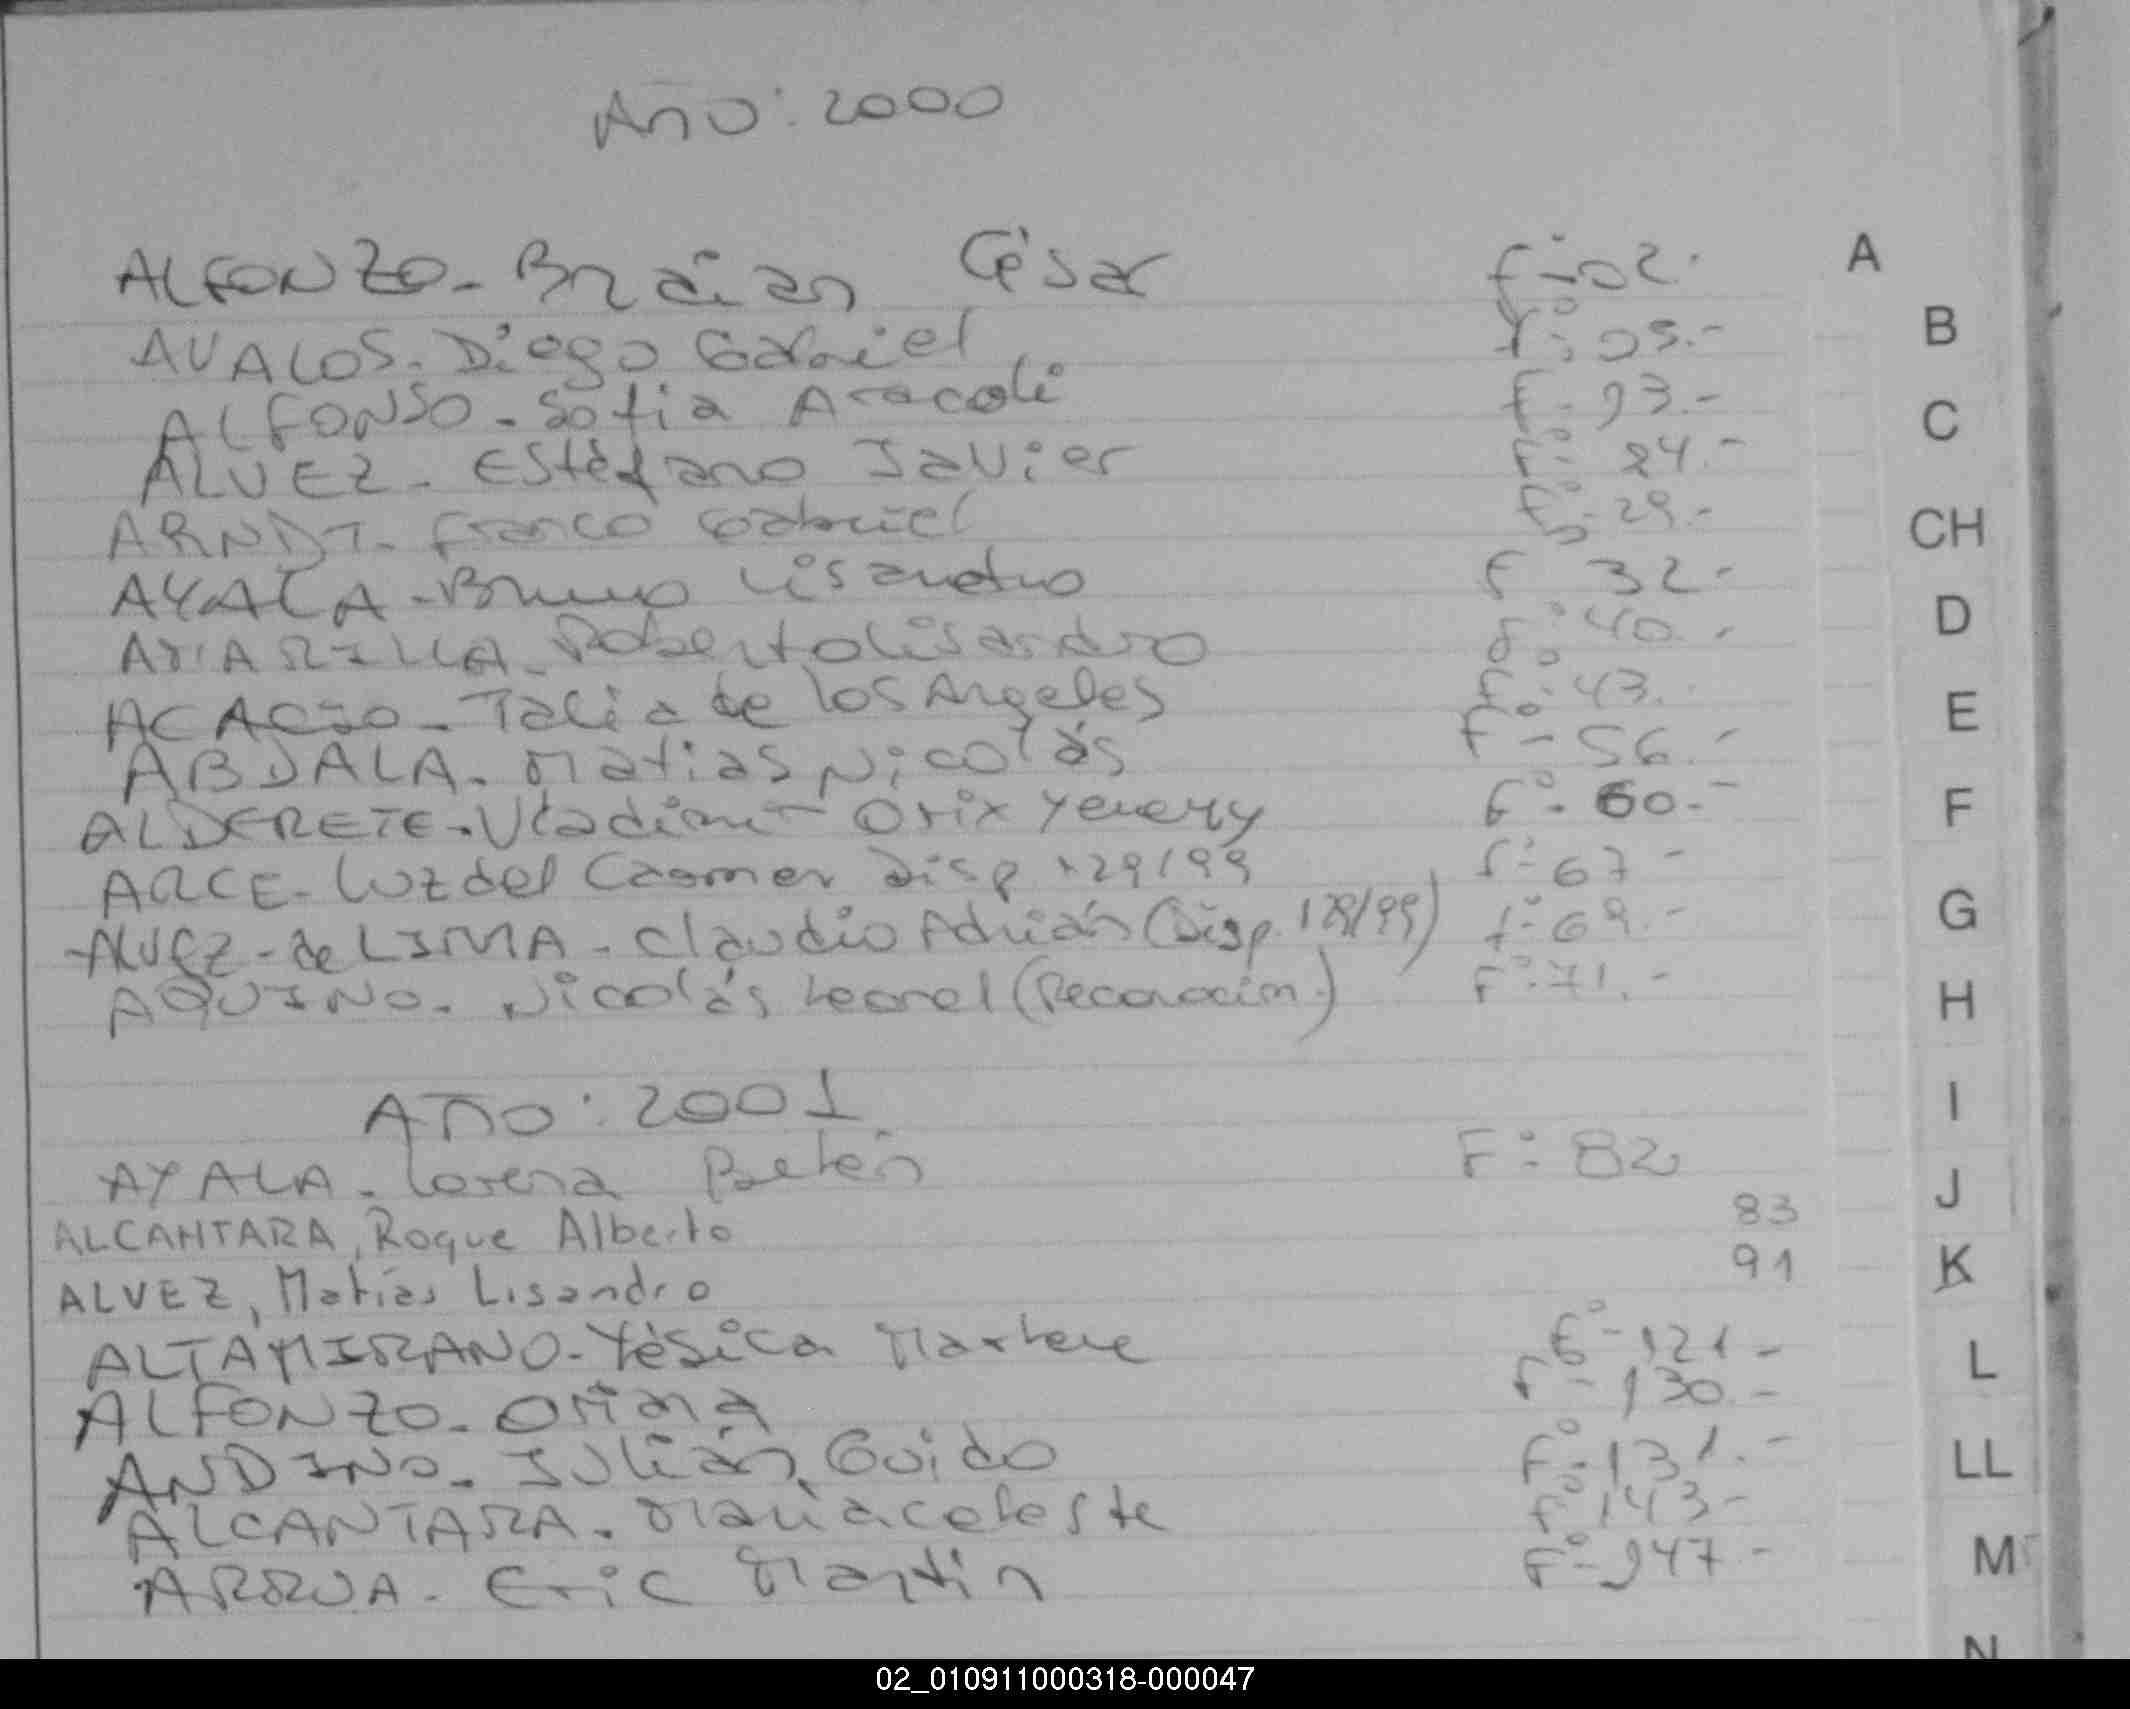 Año: 2000
ALFONZO - Braian César F° 02.
AVALOS - Diego Gabriel F° 05.-
ALFONSO - Sofia Araceli F° 13.-
ALVEZ - Estéfano Javier F° 24.-
ARNDT - Franco Gabriel F° 29.-
AYALA - Bruno Lisandro F° 32-
Roberto Lisandro F° 40.-
ACACIO - Talia de los Angeles F° 43.
ABDALA - Matias Nicolás F° 56.-
ALDERETE - Vladimir Orix F° 60.-
ARCE - Luz del Carmen Disp 129/99 F° 67-
ALVEZ - de LIMA - Claudio Adrián (Disp. 128/99) F° 69.-
AQUINO - Nicolás Leonel F° 71.-
Año: 2001
AYALA - Lorena Belén F° 82
ALCANTARA, Roque Alberto 83
ALVEZ, Matías Lisandro 91
ALTAMIRANO - Yésica Marlene F° 121-
ALFONZO - Oriana F° 130.-
ANDINO - Julián Guido F° 131.-
ALCANTARA - Maria Celeste F° 143-
ARRUA - Eric Martin F° 147-
A
B
C
CH
D
E
F
G
H
I
J
K
L
LL
M
N
02_010911000318-000047